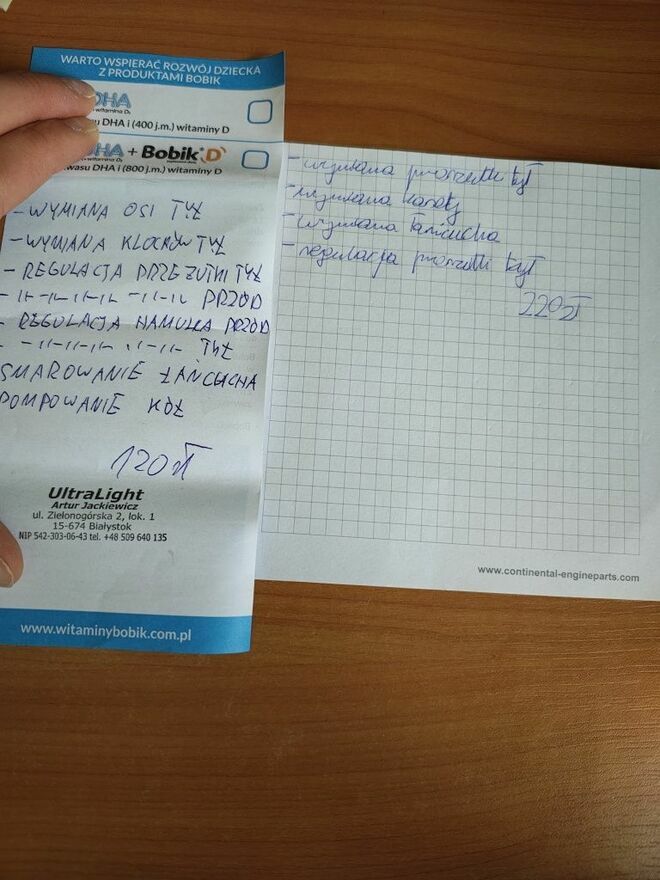 WARTO WSPIERAĆ ROZWÓJ DZIECKA
Z PRODUKTAMI BOBIK
DHA
witamina D₃
asu DHA i (400 j.m.) witaminy D
DHA + Bobik D
kwasu DHA i (800 j.m.) witaminy D
- WYMIANA OSI TYŁ
- WYMIANA KLOCKÓW TYŁ
- REGULACJA PRZEZUTKI TYŁ
- -11- -11- -11- PRZÓD
- REGULACJA HAMULCA PRZÓD
- -11- -11- -11- TYŁ
SMAROWANIE ŁAŃCUCHA
POMPOWANIE KÓŁ
120 zł
UltraLight
Artur Jackiewicz
ul. Zielonogórska 2, lok. 1
15-674 Białystok
NIP 542-303-06-43 tel. +48 509 640 135
www.witaminybobik.com.pl
- wymiana przerzutki tył
- wymiana kasety
- wymiana łańcucha
- regulacja przerzutki tył
220 zł
www.continental-engineparts.com